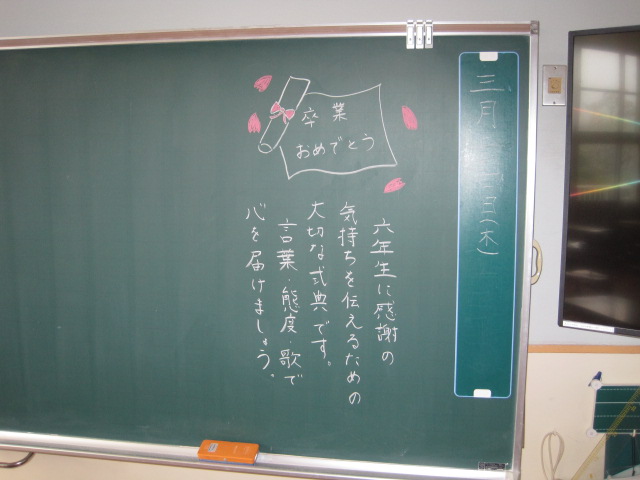 三月
日(木)
卒業
おめでとう
六年生に感謝の
気持ちを伝えるための
大切な式典です。
言葉・態度・歌で
心を届けましょう。